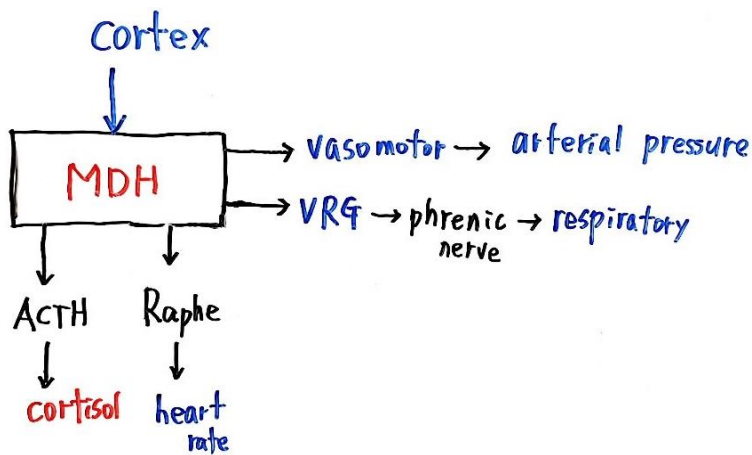 Cortex
MDH
vasomotor → arterial pressure
VRG → phrenic nerve → respiratory
ACTH
Raphe
cortisol
heart rate